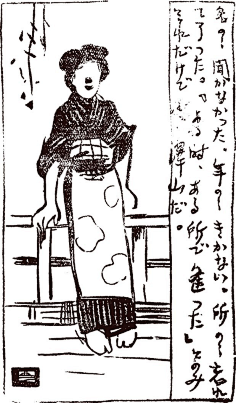 名の聞かなかった。年のきかない。所の忘れ
てしった。「ある時、ある所で逢った」とのみ
それだけで沢山だ。